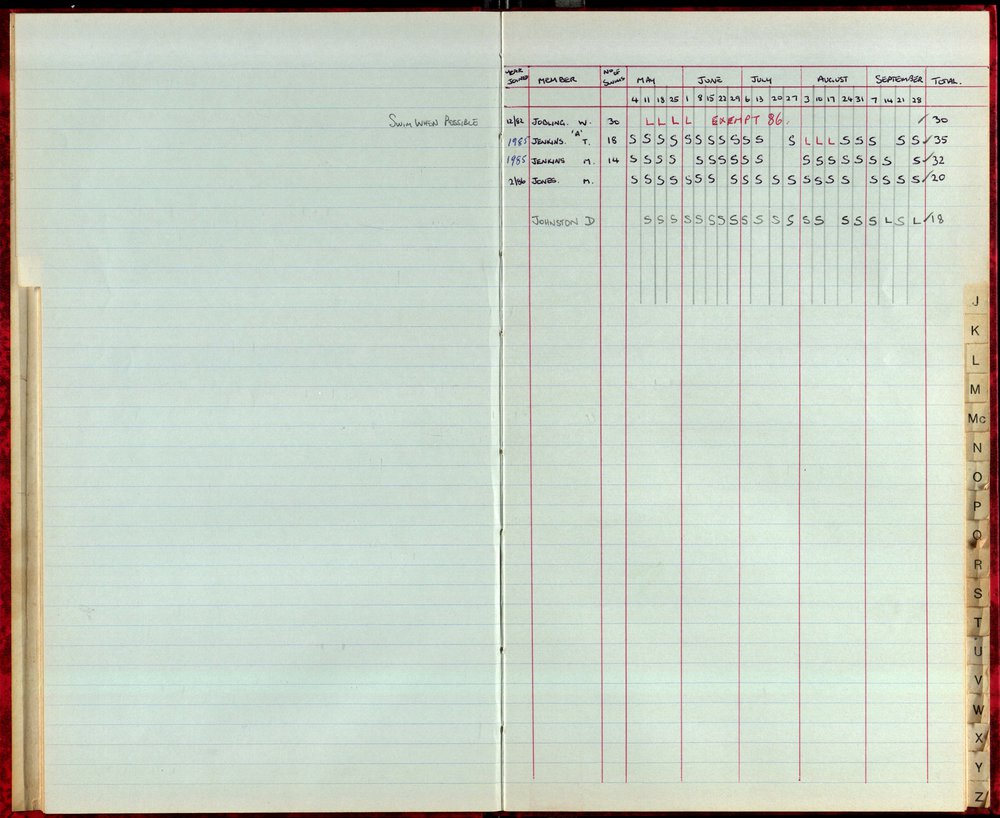 YEAR JOINED MEMBER No OF SWIMS MAY JUNE JULY AUGUST SEPTEMBER TOTAL.
4 11 18 25 1 8 15 22 29 6 13 20 27 3 10 17 24 31 7 14 21 28
SWIM WHEN POSSIBLE 12/82 JOBLING. W. 30 L L L L EXEMPT 86. ✓ 30
1985 JENKINS. 'A' T. 18 S S S S S S S S S S S S L L L S S S S S ✓ 35
1985 JENKINS M. 14 S S S S S S S S S S S S S S S S S S ✓ 32
2/86 JONES. M. S S S S S S S S S S S S S S S S S S S S ✓ 20
JOHNSTON D S S S S S S S S S S S S S S S S S L S L ✓ 18
J
K
L
M
Mc
N
O
P
Q
R
S
T
U
V
W
X
Y
Z